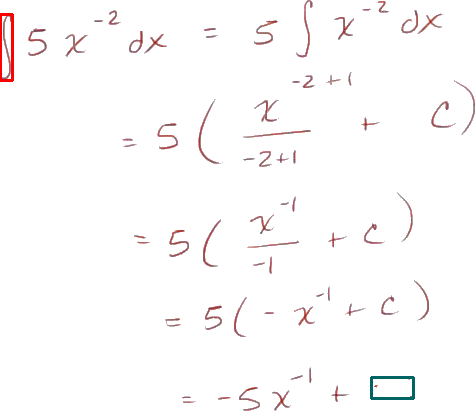 ∫ 5 x^{-2} dx = 5 ∫ x^{-2} dx
= 5 ( \frac{x^{-2+1}}{-2+1} + C )
= 5 ( \frac{x^{-1}}{-1} + C )
= 5 ( - x^{-1} + C )
= -5 x^{-1} +